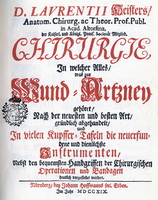 D. LAVRENTII Heisters/
Anatom. Chirurg. ac Theor. Prof. Publ.
in Acad. Altorfina,
CHIRURGIE,
In welcher Alles/
was zur
Wund-Artzney
gehöret/
Nach der neuesten und besten Art/
gründlich abgehandelt/
und
In vielen Kupffer-Tafeln die neuerfun-
dene und dienlichste
Instrumenten,
Nebst den bequemsten Handgriffen der Chirurgischen
Operationen und Bandagen
deutlich vorgestellet werden.
Nürnberg/ bey Johann Hoffmanns sel. Erben.
Im Jahr MDCCXIX.